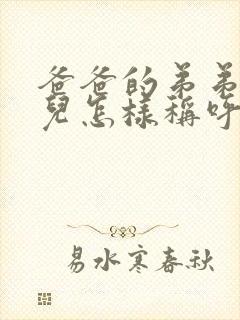 爸爸的弟弟
兒怎樣稱呼
易水寒春秋